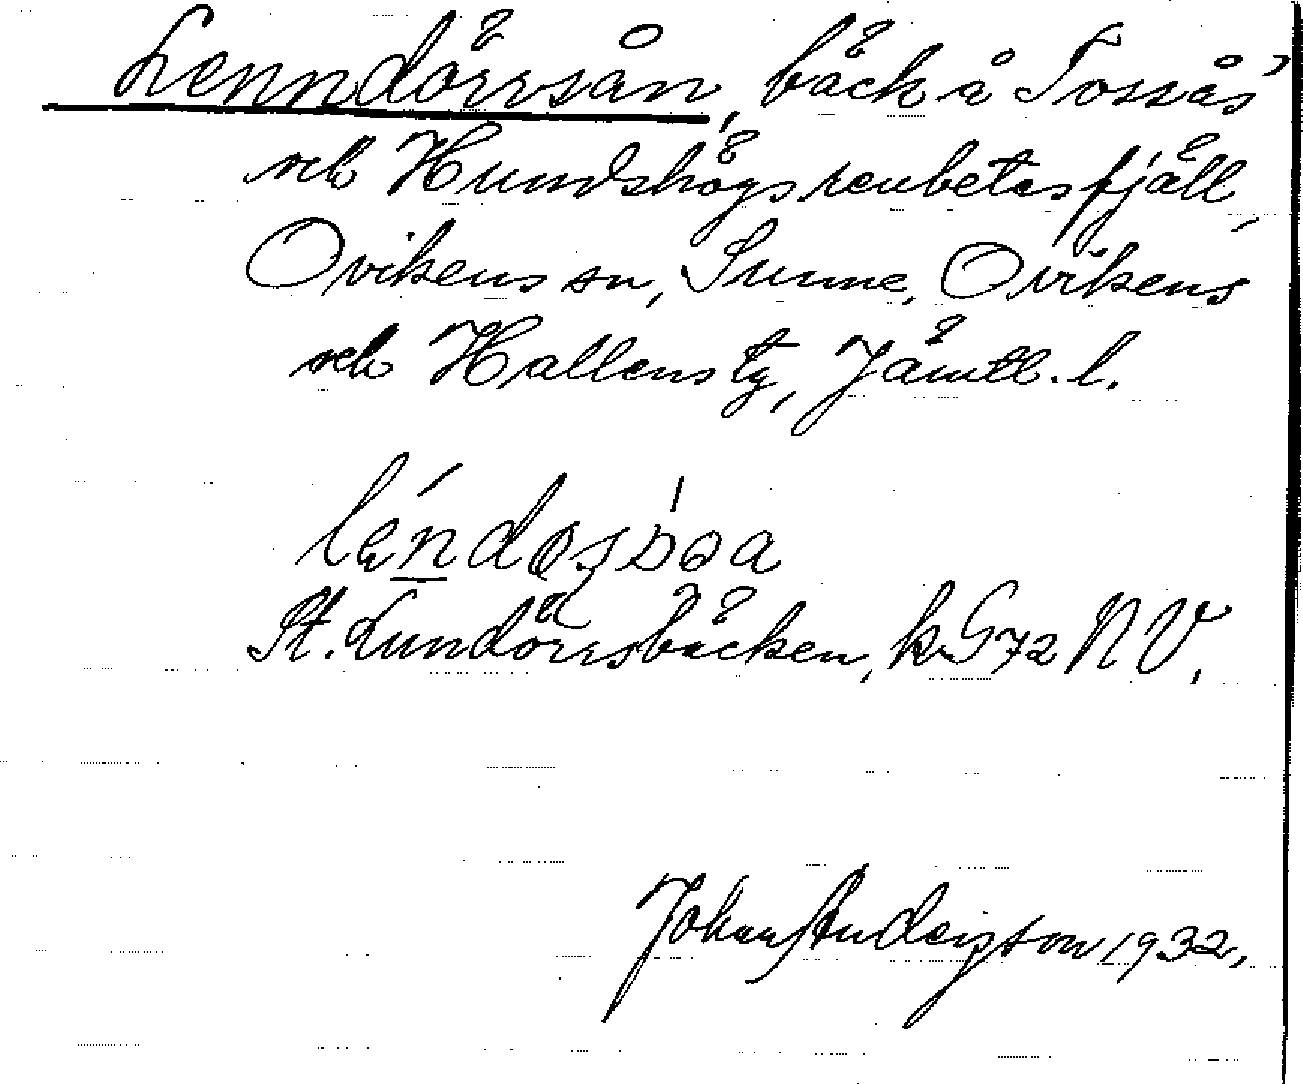 Lenndörrsån, bäck å Tossås'
och Hundshögs renbetesfjäll,
Ovikens sn, Sunne, Ovikens
och Hallens tg, Jämtl. l.
St. Lundörrsbäcken, k. G 72 NV.
Johan Anderzson 1932.